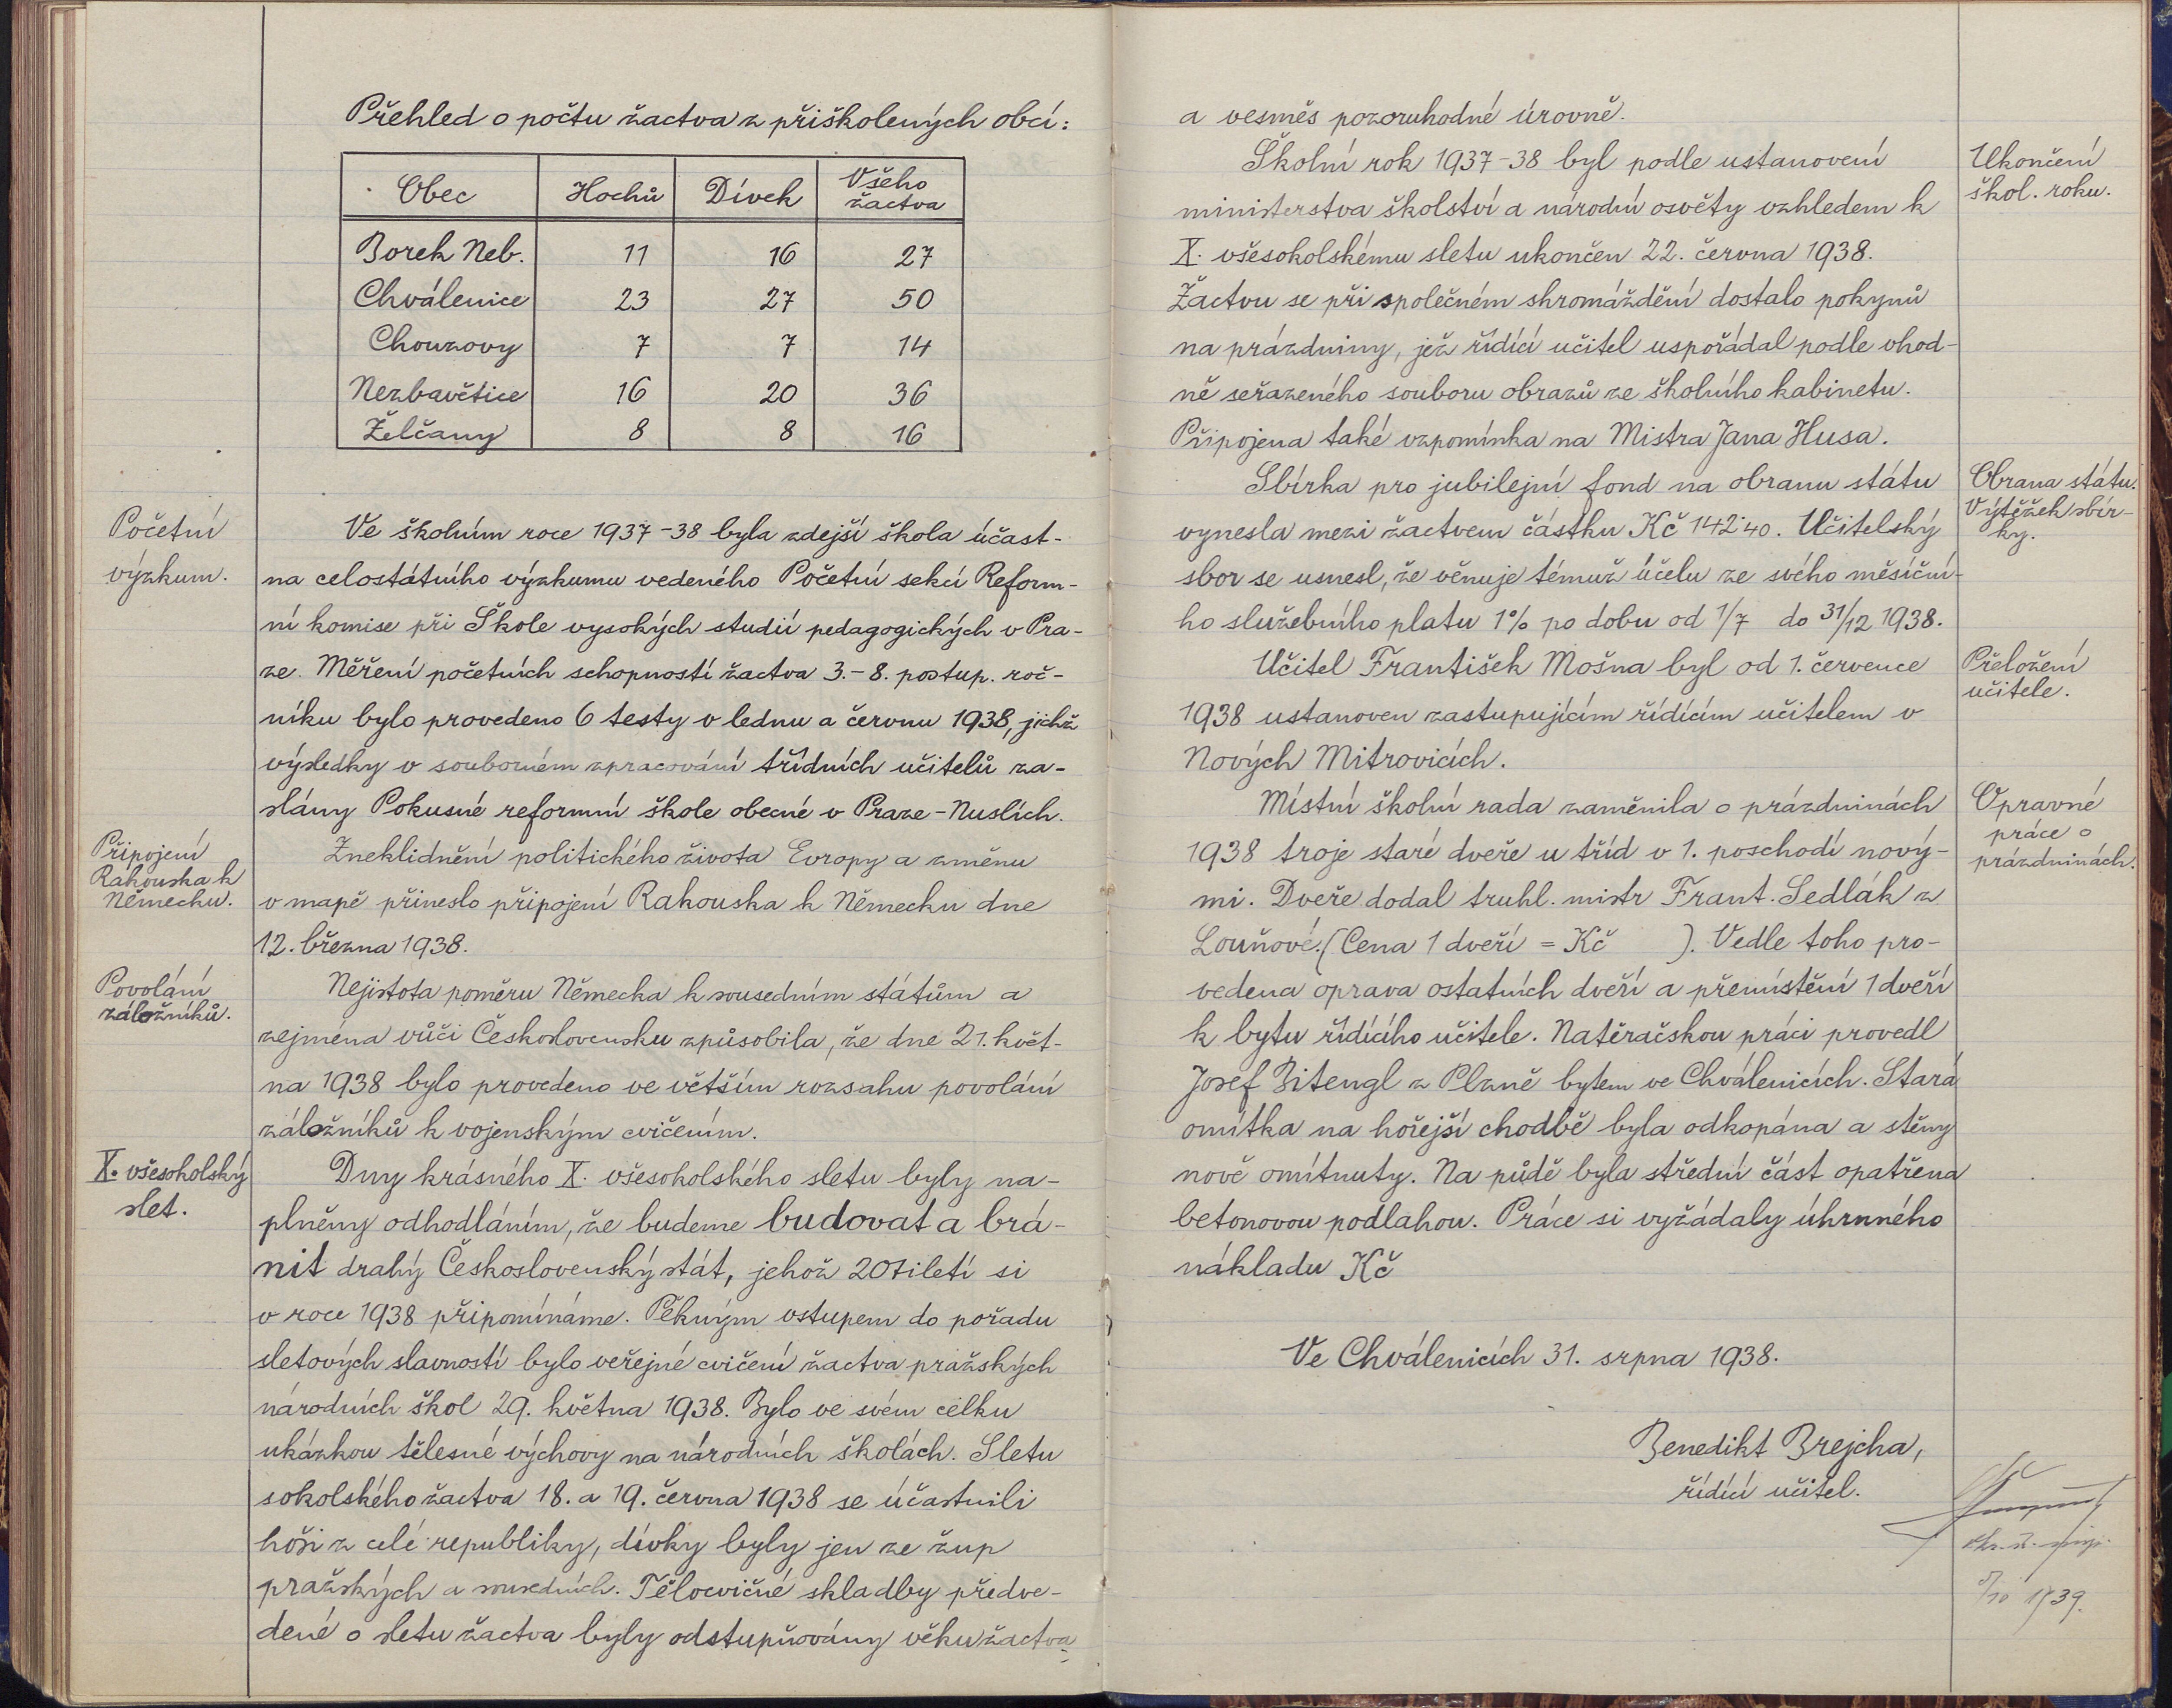 Přehled o počtu žactva z přiškolených obcí:
Obec Hochů Dívek Všeho žactva
Borek Neb. 11 16 27
Chválenice 23 27 50
Chouzovy 7 7 14
Nezbavětice 16 20 36
Želčany 8 8 16
Početní
výzkum.
Ve školním roce 1937-38 byla zdejší škola účast-
na celostátního výzkumu vedeného Početní sekcí Reform-
ní komise při Škole vysokých studií pedagogických v Pra-
ze. Měření početních schopností žactva 3.-8. postup. roč-
níku bylo provedeno 6 testy v lednu a červnu 1938, jichž
výsledky v souborném zpracování třídních učitelů za-
slány Pokusné reformní škole obecné v Praze-Nuslích.
Připojení
Rakouska k
Německu.
Zneklidnění politického života Evropy a změnu
v mapě přineslo připojení Rakouska k Německu dne
12. března 1938.
Povolání
záložníků.
Nejistota poměru Německa k sousedním státům a
zejména vůči Československu způsobila, že dne 21. květ-
na 1938 bylo provedeno ve větším rozsahu povolání
záložníků k vojenským cvičením.
X. všesokolský
slet.
Dny krásného X. všesokolského sletu byly na-
plněny odhodláním, že budeme budovat a brá-
nit drahý Československý stát, jehož 20tiletí si
v roce 1938 připomínáme. Pěkným vstupem do pořadu
sletových slavností bylo veřejné cvičení žactva pražských
národních škol 29. května 1938. Bylo ve svém celku
ukázkou tělesné výchovy na národních školách. Sletu
sokolského žactva 18. a 19. června 1938 se účastnili
hoši z celé republiky, dívky byly jen ze žup
pražských a sousedních. Tělocvičné skladby předve-
dené o sletu žactva byly odstupňovány věku žactva
a vesměs pozoruhodné úrovně.
Ukončení
škol. roku.
Školní rok 1937-38 byl podle ustanovení
ministerstva školství a národní osvěty vzhledem k
X. všesokolskému sletu ukončen 22. června 1938.
Žactvu se při společném shromáždění dostalo pokynů
na prázdniny, jež řídící učitel uspořádal podle vhod-
ně seřazeného souboru obrazů ze školního kabinetu.
Připojena také vzpomínka na Mistra Jana Husa.
Obrana státu.
Výtěžek sbír-
ky.
Sbírka pro jubilejní fond na obranu státu
vynesla mezi žactvem částku Kč 142·40. Učitelský
sbor se usnesl, že věnuje témuž účelu ze svého měsíční-
ho služebního platu 1% po dobu od 1/7 do 31/12 1938.
Přeložení
učitele.
Učitel František Mošna byl od 1. července
1938 ustanoven zastupujícím řídícím učitelem v
Nových Mitrovicích.
Opravné
práce o
prázdninách.
Místní školní rada zaměnila o prázdninách
1938 troje staré dveře u tříd v 1. poschodí nový-
mi. Dveře dodal truhl. mistr Frant. Sedlák z
Louňové. (Cena 1 dveří = Kč ). Vedle toho pro-
vedena oprava ostatních dveří a přemístění 1 dveří
k bytu řídícího učitele. Natěračskou práci provedl
Josef Bitengl z Plzně bytem ve Chválenicích. Stará
omítka na hořejší chodbě byla odkopána a stěny
nově omítnuty. Na půdě byla střední část opatřena
betonovou podlahou. Práce si vyžádaly úhrnného
nákladu Kč
Ve Chválenicích 31. srpna 1938.
Benedikt Brejcha,
řídící učitel.
1939.